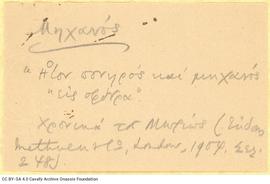 Μηχανός
"Ἦτον πονηρὸς καὶ μηχανὸς
"εἰς
Χρονικὰ τοῦ Μωρέως (Ἔκδοσ.
Methuen & Co, London, 1904, Σελ.
248).
CC BY-SA 4.0 Cavafy Archive Onassis Foundation